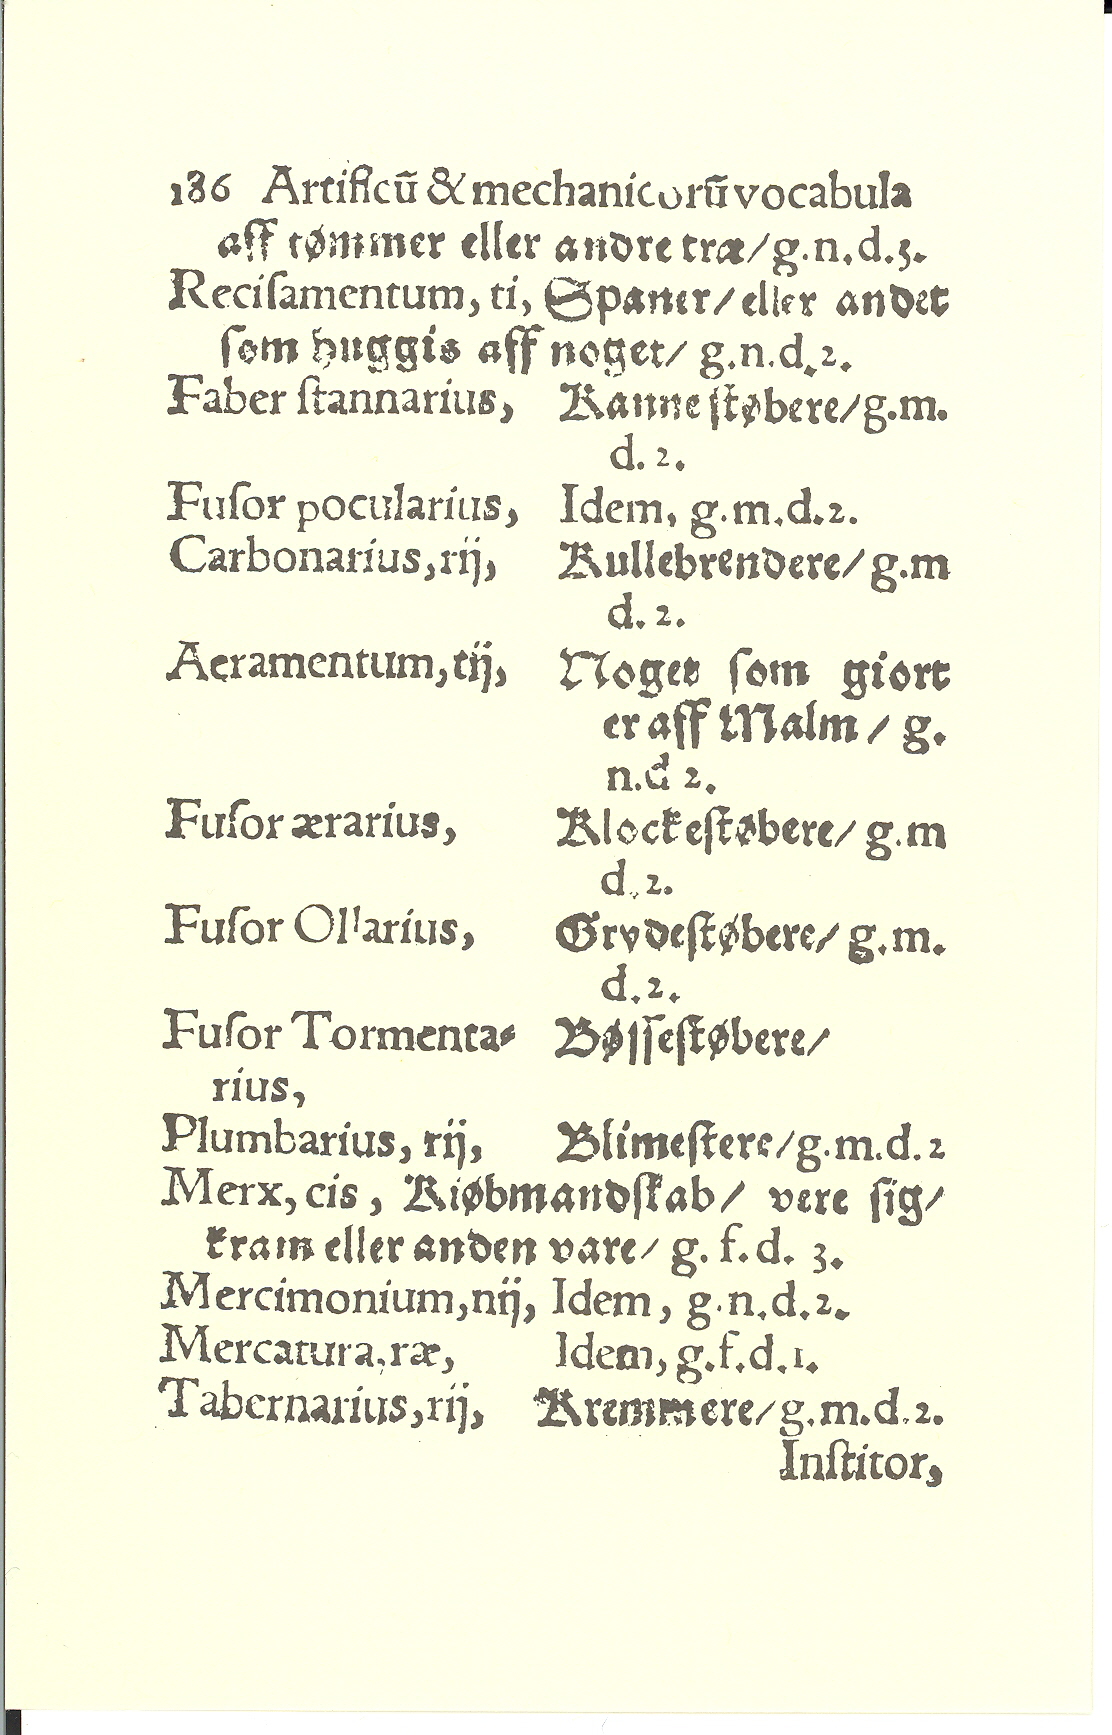 186 Artificũ & mechanicorũ vocabula
aff tømmer eller andre træ/ g.n.d.3.
Reciſamentum, ti, Spaner/ eller andet
ſom huggis aff noget/ g.n.d.2.
Faber ſtannarius, Kanneſtøbere/ g.m.
d. 2.
Fuſor pocularius, Idem, g.m.d.2.
Carbonarius, rij, Kullebrendere/ g.m
d. 2.
Aeramentum, tij, Noget ſom giort
er aff Malm / g.
n.d 2.
Fuſor ærarius, Klockeſtøbere/ g.m
d. 2.
Fuſor Ollarius, Grydeſtøbere/ g.m.
d.2.
Fuſor Tormenta⸗ Bøſſeſtøbere/
rius,
Plumbarius, rij, Blimeſtere/ g.m.d.2
Merx, cis, Kiøbmandſkab/ vere ſig/
kram eller anden vare/ g. f.d. 3.
Mercimonium, nij, Idem, g.n.d.2.
Mercatura, ræ, Idem, g.f.d.1.
Tabernarius, rij, Kremmere/ g.m.d.2.
Inſtitor,